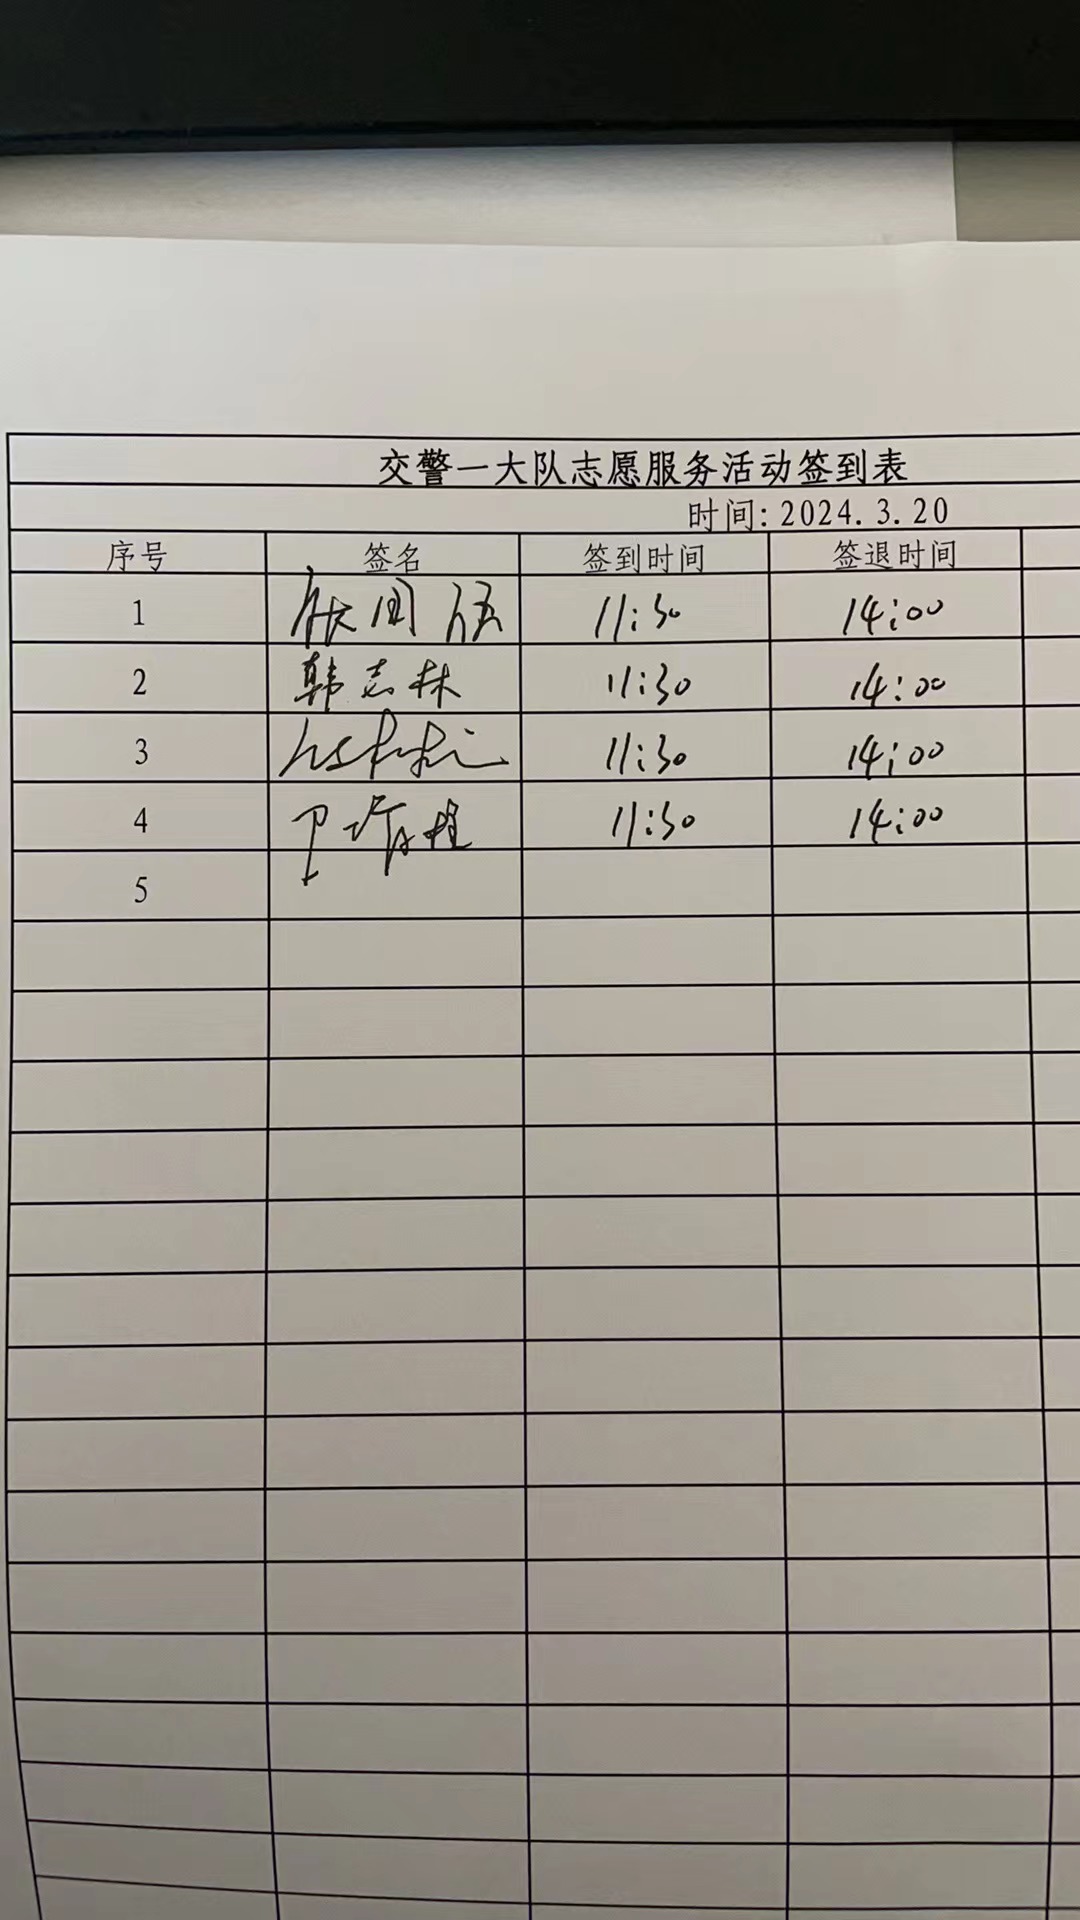 交警一大队志愿服务活动签到表
时间: 2024.3.20
序号 签名 签到时间 签退时间
1 11:30 14:00
2 韩志林 11:30 14:00
3 11:30 14:00
4 11:30 14:00
5